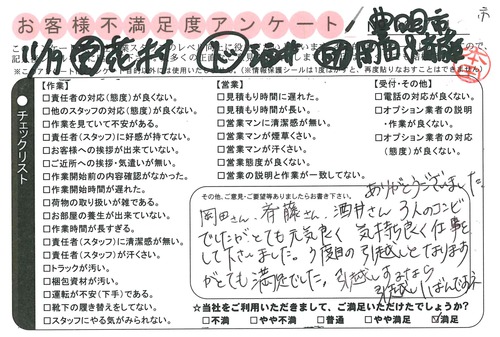 お客様不満足度アンケート
豊明市
11/9
【作業】
□責任者の対応(態度)が良くない。
□他のスタッフの対応(態度)が良くない。
□作業を見ていて不安がある。
□責任者(スタッフ)に好感が持てない。
□お客様への挨拶が出来ていない。
□ご近所への挨拶・気遣いが無い。
□作業開始前の内容確認がなかった。
□作業開始時間が遅れた。
□荷物の取り扱いが雑である。
□お部屋の養生が出来ていない。
□作業時間が長すぎる。
□責任者(スタッフ)に清潔感が無い。
□責任者(スタッフ)が汗くさい。
□トラックが汚い。
□梱包資材が汚い。
□運転が不安(下手)である。
□靴下の履き替えをしてない。
□スタッフにやる気がみられない。
【営業】
□見積もり時間に遅れた。
□見積もり時間が長い。
□営業マンに清潔感が無い。
□営業マンが煙草くさい。
□営業マンが汗くさい。
□営業態度が良くない。
□営業の説明と作業が一致してない。
【受付・その他】
□電話の対応が良くない。
□オプション業者の説明
・作業が良くない。
□オプション業者の対応
(態度)が良くない。
チェックリスト
その他、ご意見・ご要望等ありましたらお書き下さい。
ありがとうございました
岡田さん、斉藤さん、酒井さん 3人のコンビ
でしたがとても元気良く 気持ち良く仕事を
して下さいました。3度目の引越しとなります
がとても満足でした。引越しするなら
引越し1ばんですネ
☆当社をご利用いただきまして、ご満足いただけたでしょうか?
□不満 □やや不満 □普通 □やや満足 ☑満足